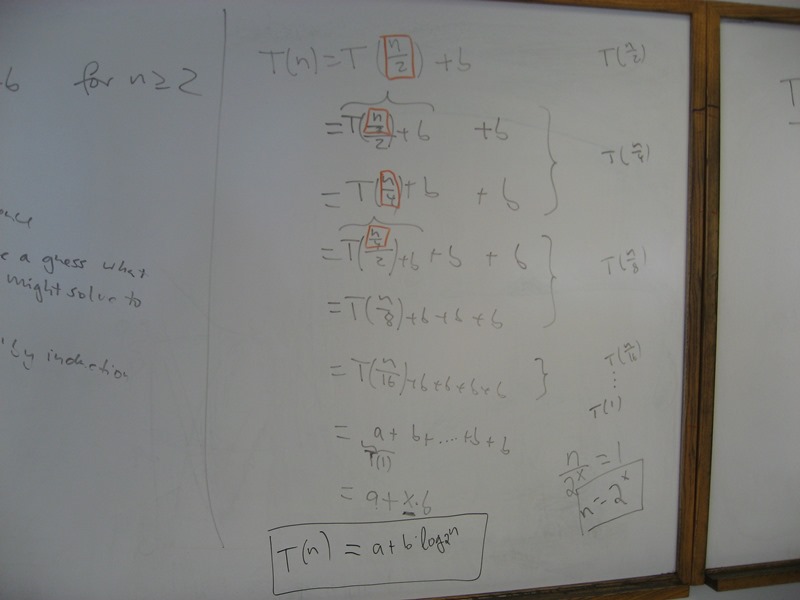 +b for n ≥ 2
a guess what
might solve to
by induction
T(n) = T(n/2) + b
T(n/2)
= T((n/2)/2) + b + b
T(n/4)
= T(n/4) + b + b
= T((n/4)/2) + b + b + b
T(n/8)
= T(n/8) + b + b + b
= T(n/16) + b + b + b + b
T(n/16)
⋮
T(1)
= a + b + .... + b + b
T(1)
n/2^x = 1
= a + x · b
n = 2^x
T(n) = a + b · log₂n
T